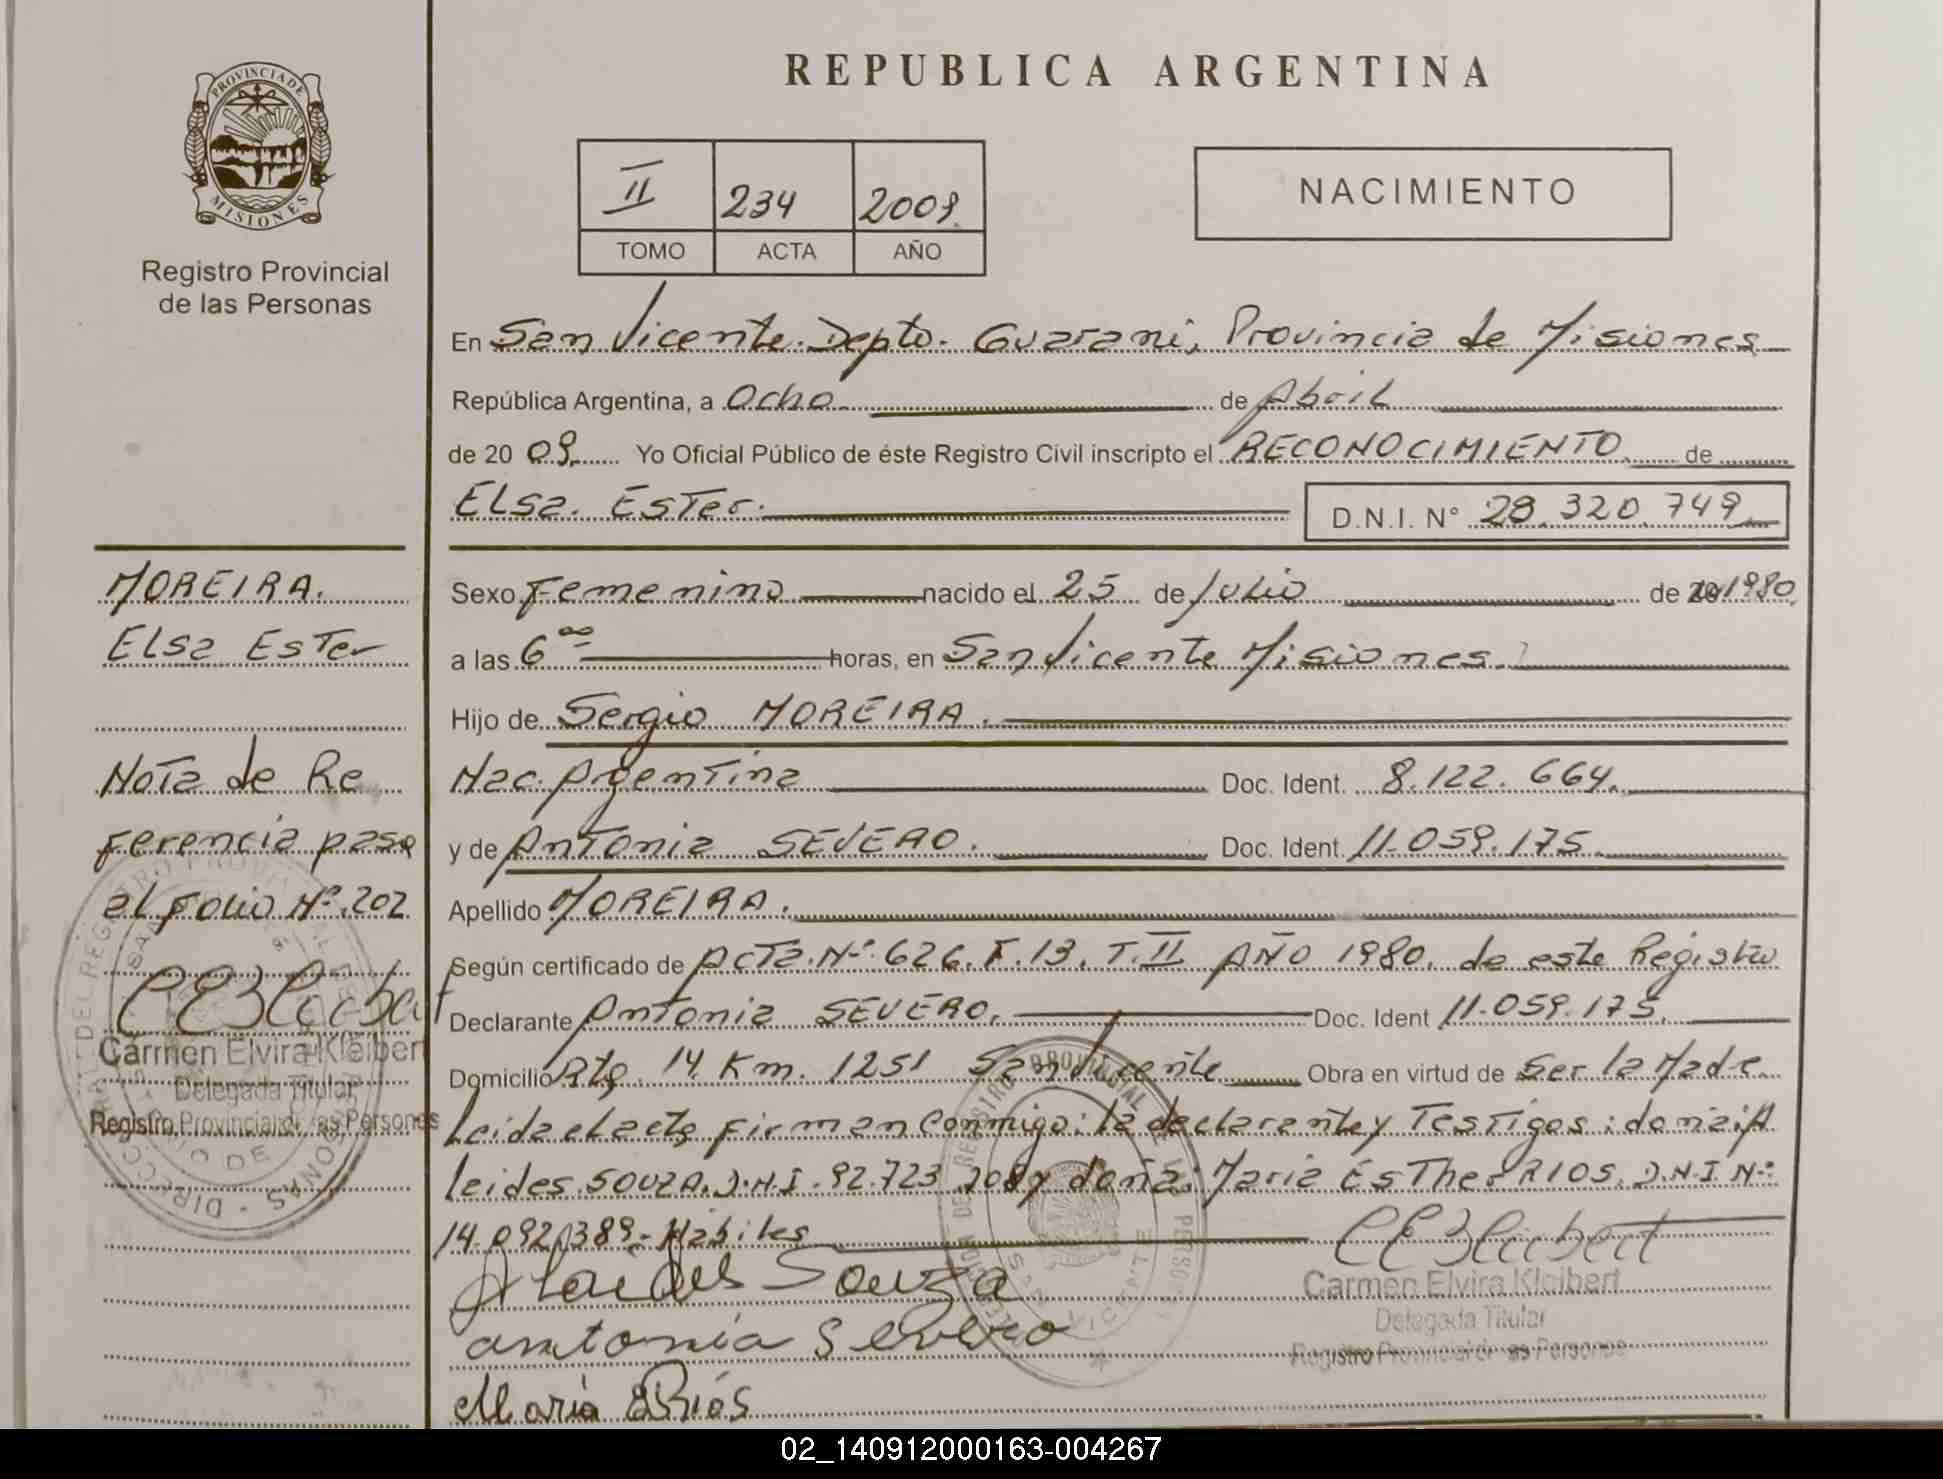 REPUBLICA ARGENTINA
PROVINCIA DE
MISIONES
Registro Provincial
de las Personas
II 234 2009.
TOMO ACTA AÑO
NACIMIENTO
En San Vicente. Depto. Guarani, Provincia de Misiones
República Argentina, a Ocho de Abril
de 20 09. Yo Oficial Público de éste Registro Civil inscripto el RECONOCIMIENTO de
Elsa. Ester. D.N.I. N° 28.320.749.
MOREIRA.
Elsa Ester
Nota de Re
ferencia pase
al folio Nº.202
CEKleibert
Carmen Elvira Kleibert
Delegada Titular
Registro Provincial de las Personas
Sexo Femenino nacido el 25 de Julio de 1980.
a las 6 oo horas, en San Vicente Misiones.
Hijo de Sergio MOREIRA.
Nac. Argentina Doc. Ident. 8.122.664.
y de Antonia SEVERO. Doc. Ident. 11.059.175.
Apellido MOREIRA.
Según certificado de Acta.Nº.626.F.13.T.II AÑO 1980. de este Registro
Declarante Antonia SEVERO. Doc. Ident 11.059.175.
Domicilio Rta. 14 Km. 1251 San Vicente Obra en virtud de Ser la Madre.
Leida el acta firman Conmigo: la declarante y Testigos: doña: A
leides.SOUZA.D.N.I.92.723 y doña: Maria Esther RIOS.D.N.I.Nº:
14.092.389.-Hábiles
CEKleibert
Alaides Souza
Carmen Elvira Kleibert
Delegada Titular
antonia Severo
Registro Provincial de las Personas
SAN VICENTE
María E Ríos
02_140912000163-004267